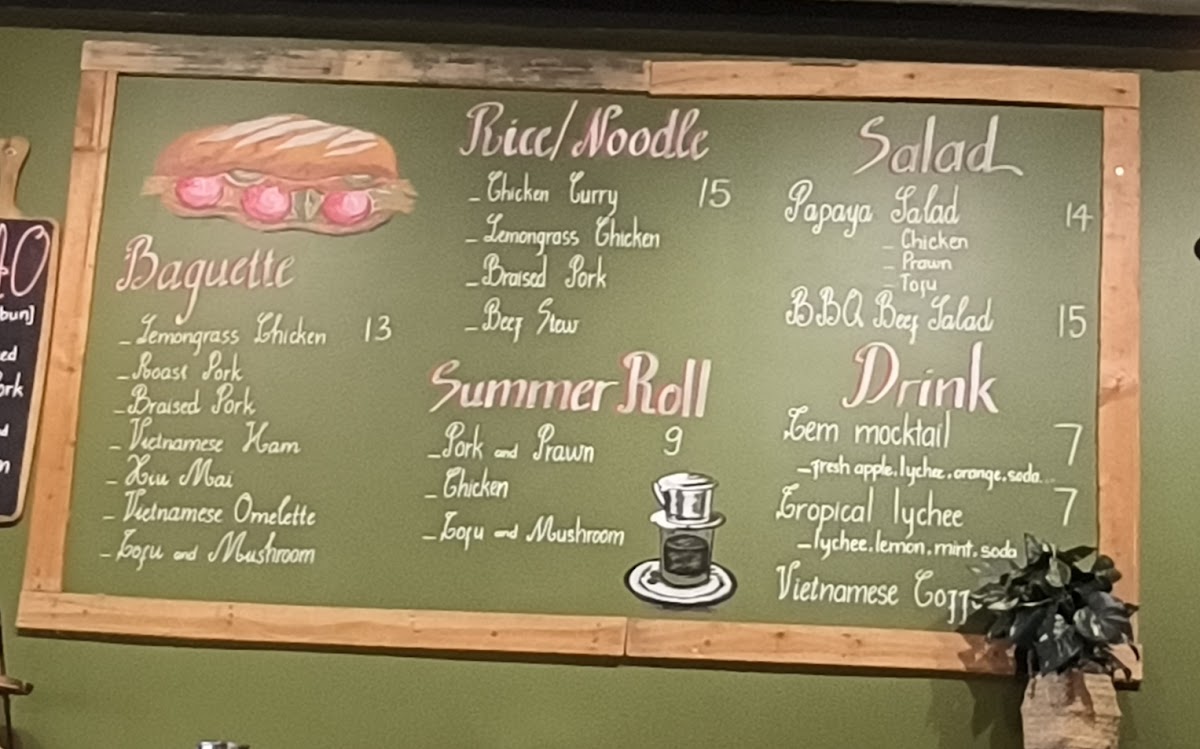 Baguette
- Lemongrass Chicken 13
- Roast Pork
- Braised Pork
- Vietnamese Ham
- Xiu Mai
- Vietnamese Omelette
- Tofu and Mushroom
Rice/Noodle
- Chicken Curry 15
- Lemongrass Chicken
- Braised Pork
- Beef Stew
Summer Roll
- Pork and Prawn 9
- Chicken
- Tofu and Mushroom
Salad
Papaya Salad 14
- Chicken
- Prawn
- Tofu
BBQ Beef Salad 15
Drink
Tem mocktail 7
- fresh apple.lychee.orange.soda...
Tropical lychee 7
- lychee.lemon.mint.soda
Vietnamese
bun]